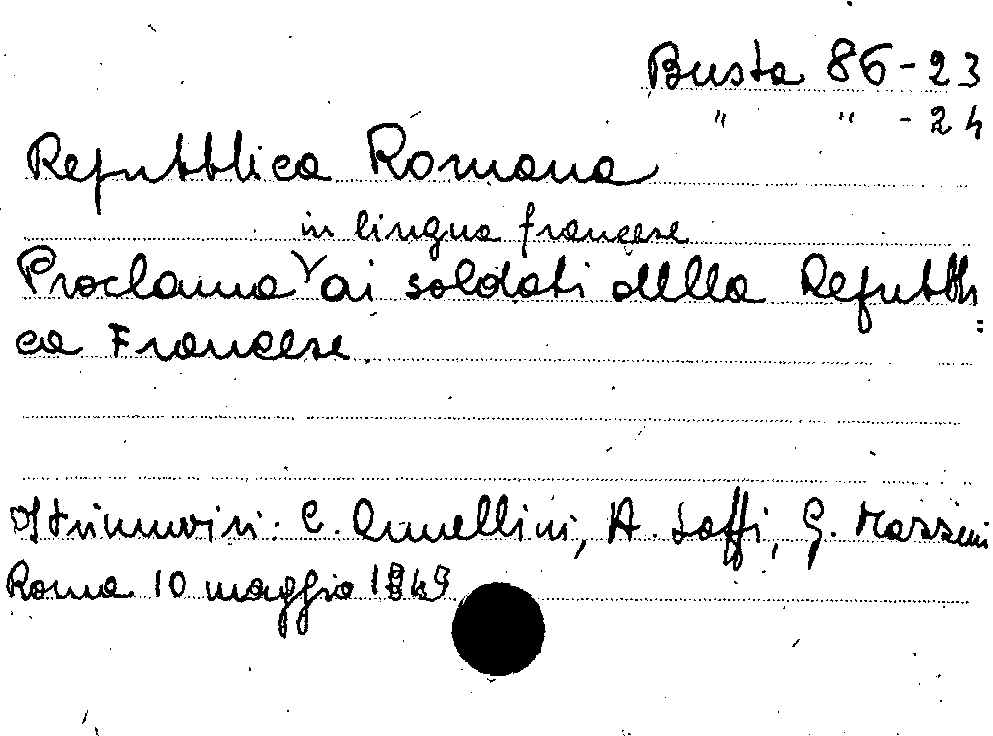 Busta 86-23
" " -24
Repubblica Romana
in lingua francese
Proclama ai soldati della Repubbli=
ca Francese.
I triumviri: C. Armellini, A. Saffi, G. Mazzini
Roma 10 maggio 1849